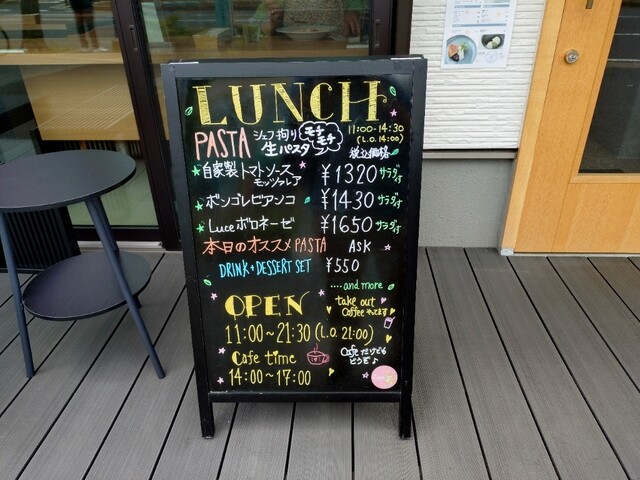 LUNCH
PASTA シェフ拘り 生パスタ モチモチ 11:00-14:30 (L.O.14:00)
税込価格
自家製トマトソース モッツァレア ¥1320 サラダ付
ボンゴレビアンコ ¥1430 サラダ付
Luceボロネーゼ ¥1650 サラダ付
本日のオススメPASTA ASK
DRINK+DESSERT SET ¥550
....and more
OPEN
take out Coffee やってます
11:00~21:30 (L.O. 21:00)
Cafe time
Cafeだけでも どうぞ♪
14:00~17:00